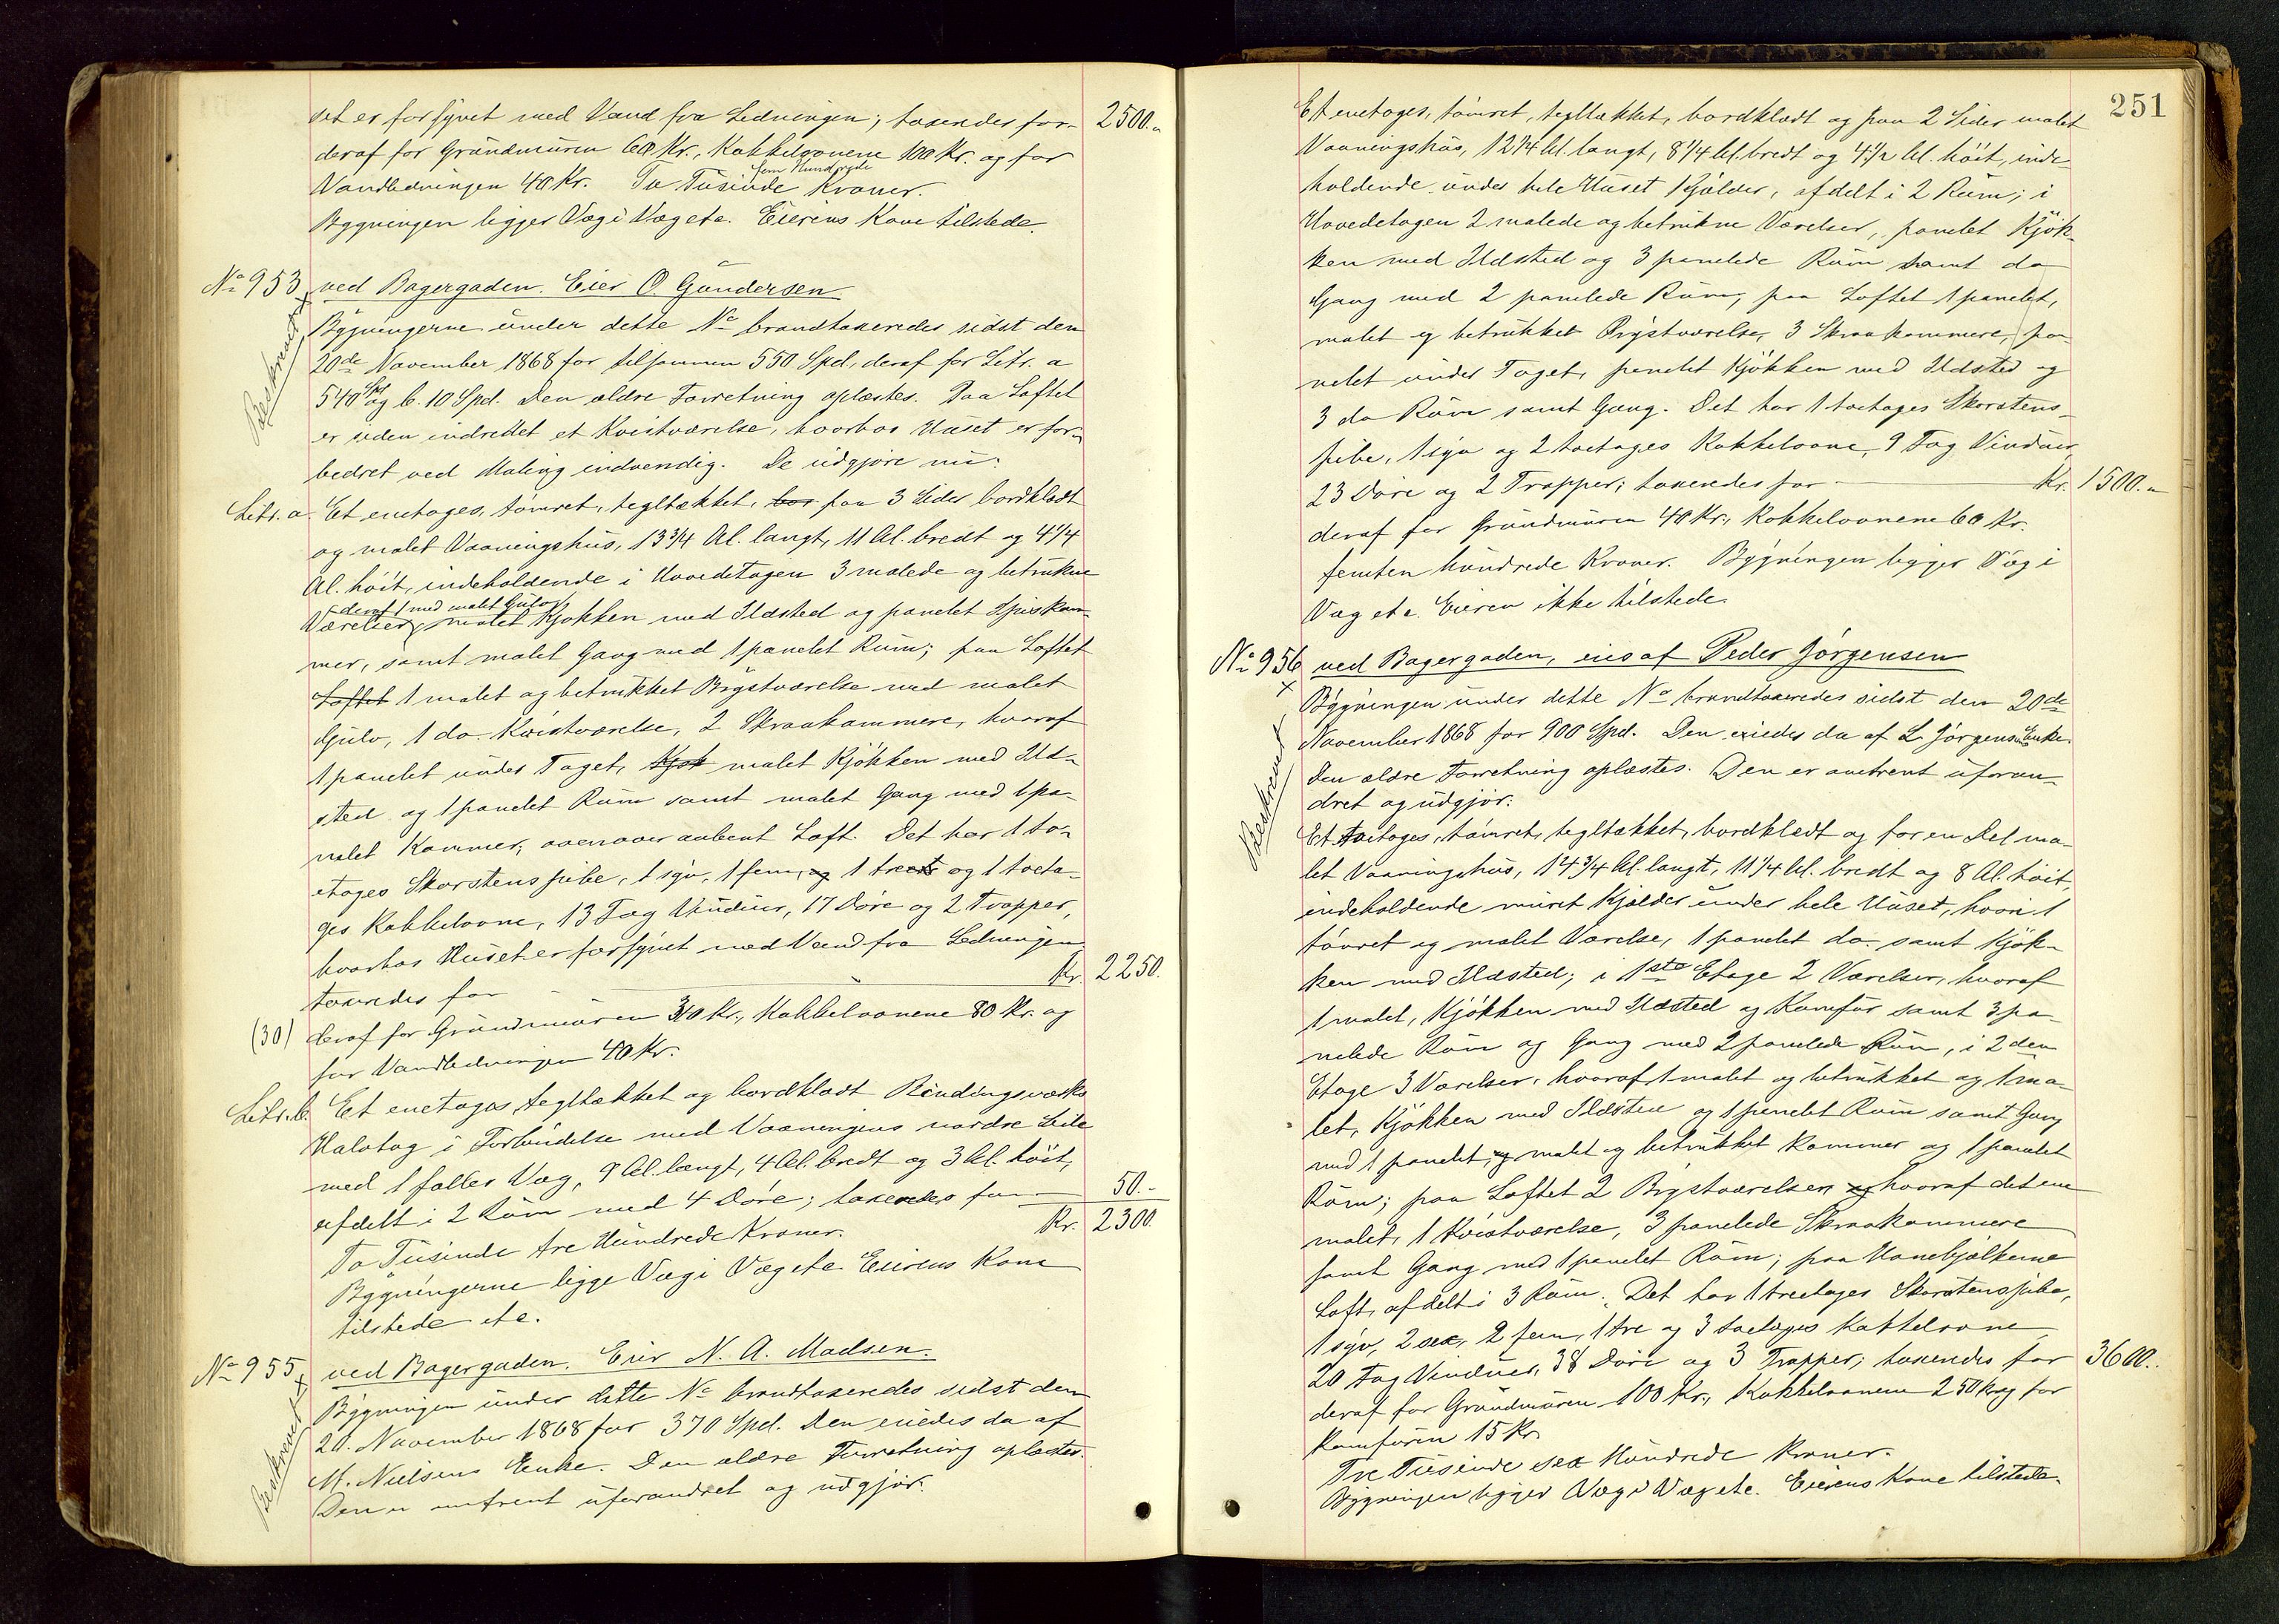 set er forsynet med Vand fra Ledningen; taxeredes for 2500.-
deraf for Grundmuren 60 Kr., Kakkelovnene 100 Kr. og for
Vandledningen 40 Kr. To Tusinde fem Hundrede Kroner.
Bygningen ligger Væg i Væg etc. Eierens Kone tilstede.
No 953 ved Bagergaden. Eier O. Gundersen
Beskrevet
Bygningerne under dette No brandtaxeredes sidst den
20de November 1868 for tilsammen 550 Spd., deraf for Litr. a
540 Spd og b. 10 Spd. Den ældre Forretning oplæstes. Paa Loftet
er siden indrettet et Kvistværelse, hvorhos Huset er for-
bedret ved Maling indvendig. De udgjøre nu:
Litr. a. Et enetages, tömret, tegltækket, bor paa 3 Sider bordklædt
og malet Vaaningshus, 13 3/4 Al. langt, 11 Al. bredt og 4 1/4
Al. höit, indeholdende i Hovedetagen 3 malede og betrukne
Værelser, deraf 1 med malet Gulv, malet Kjøkken med Ildsted og panelet Spiskam-
mer, samt malet Gang med 1 panelet Rum; paa Loftet
Loftet 1 malet og betrukket Brystværelse med malet
Gulv, 1 do. Kvistværelse, 2 Skraakammere, hvoraf
1 panelet under Taget, Kjøk malet Kjökken med Ild-
sted og 1 panelet Rum samt malet Gang med 1 pa-
nelet Kammer, ovenover aabent Loft. Det har 1 to-
etages Skorstenspibe, 1 syv, 1 fem, og 1 tre og 1 toeta-
ges Kakkelovne, 13 Fag Vinduer, 17 Döre og 2 Trapper,
hvorhos Huset er forsynet med Vand fra Ledningen
taxeredes for Kr. 2250.
(30) deraf for Grundmuren 30 Kr., Kakkelovnene 80 Kr. og
for Vandledningen 40 Kr.
Litr. b. Et enetages, tegltækket og bordklædt Bindingsværks
Halvtag i Forbindelse med Vaaningens nordre Side
med 1 fælles Væg, 9 Al. langt, 4 Al. bredt og 3 Al. höit,
afdelt i 2 Rum med 4 Döre; taxeredes for 50.-
To Tusinde tre Hundrede Kroner. Kr. 2300.
Bygningerne ligge Væg i Væg etc. Eierens Kone
tilstede etc.
No 955 ved Bagergaden. Eier N. A. Madsen.
Beskrevet
Bygningen under dette No brandtaxeredes sidst den
20. November 1868 for 370 Spd. Den eiedes da af
M. Nielsens Enke. Den ældre Forretning oplæstes.
Den er omtrent uforandret og udgjør.
251
Et enetages, tömret, tegltækket, bordklædt og paa 2 Sider malet
Vaaningshus, 12 1/4 Al. langt, 8 1/4 Al. bredt og 4 1/2 Al. höit, inde
holdende under hele Huset 1 Kjælder, afdelt i 2 Rum; i
Hovedetagen 2 malede og betrukne Værelser, panelet Kjök-
ken med Ildsted og 3 panelede Rum samt do
Gang med 2 panelede Rum, paa Loftet 1 panelet,
malet og betrukket Brystværelse, 3 Skraakammere, pa-
nelet under Taget, panelet Kjökken med Ildsted og
3 do Rum samt Gang. Det har 1 toetages Skorstens-
pibe, 1 syv og 2 toetages Kakkelovne, 9 Fag Vinduer
23 Döre og 2 Trapper; taxeredes for Kr. 1500.-
deraf for Grundmuren 40 Kr., Kakkelovnene 60 Kr.
femten hundrede Kroner. Bygningen ligger Væg i
Væg etc. Eieren ikke tilstede.
No 956 ved Bagergaden, eies af Peder Jörgensen
Beskrevet
Bygningen under dette No brandtaxeredes sidst den 20de
November 1868 for 900 Spd. Den eiedes da af L. Jörgensens Enke.
Den ældre Forretning oplæstes. Den er omtrent uforan-
dret og udgjör:
Et toetages, tömret, tegltækket, bordklædt og for en Del ma-
let Vaaningshus, 14 3/4 Al. langt, 11 1/4 Al. bredt og 8 Al. höit,
indeholdende muret Kjælder under hele Huset, hvori 1
tömret og malet Værelse, 1 panelet do. samt Kjök-
ken med Ildsted; i 1ste Etage 2 Værelser, hvoraf
1 malet, Kjökken med Ildsted og Komfur samt 3 pa-
nelede Rum og Gang med 2 panelede Rum, i 2den
Etage 3 Værelser, hvoraf 1 malet og betrukket og 1 ma-
let, Kjökken med Ildsted og 1 panelet Rum samt Gang
med 1 panelet, og malet og betrukket Kammer og 1 panelet
Rum; paa Loftet 2 Brystværelser og hvoraf det ene
malet, 1 Kvistværelse, 3 panelede Skraakammere
samt Gang med 1 panelet Rum; paa Hanebjælkerne
Loft, afdelt i 3 Rum. Det har 1 treetages Skorstenspibe,
1 syv, 2 sex, 2 fem, 1 tre og 3 toetages Kakkelovne,
20 Fag Vinduer, 38 Döre og 3 Trapper; taxeredes for 3600..
deraf for Grundmuren 100 Kr., Kakkelovnene 250 Kr og for
Komfuren 15 Kr.
Tre Tusinde sex Hundrede Kroner.
Bygningen ligger Væg i Væg etc. Eierens Kone tilstede.